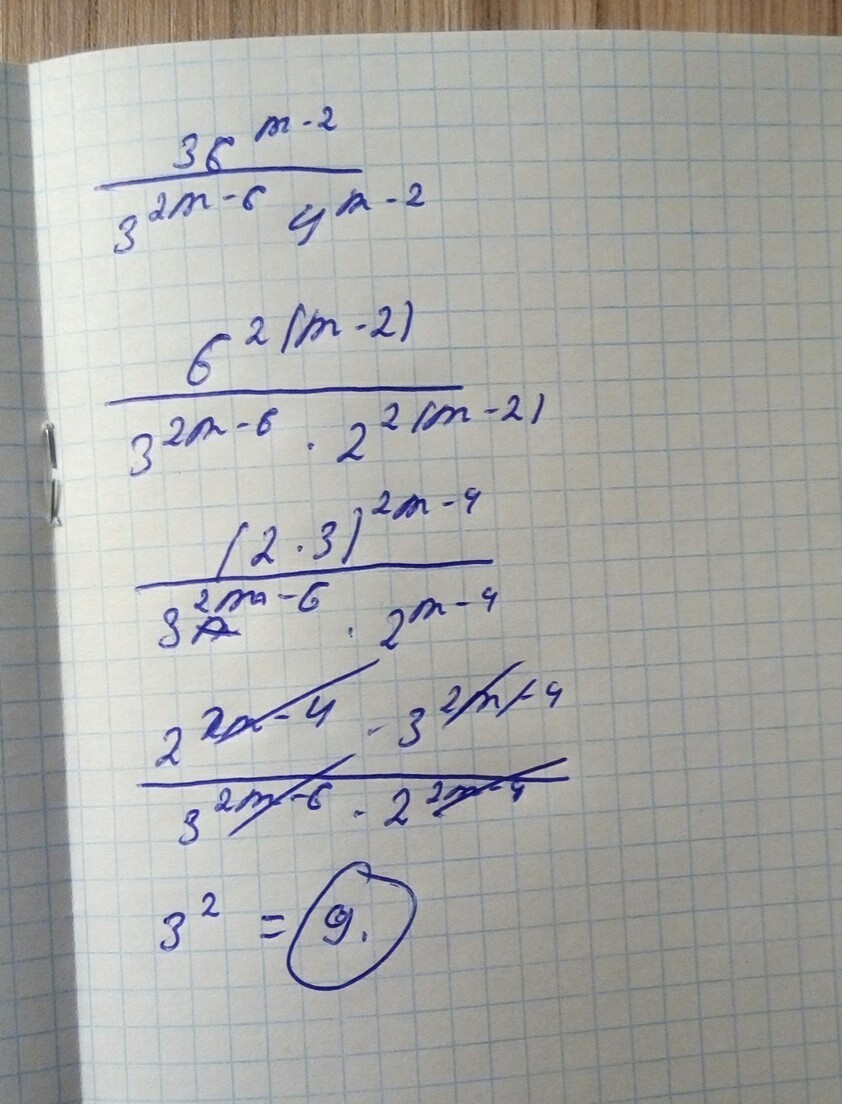 36^{m-2}
3^{2m-6} 4^{m-2}
6^{2(m-2)}
3^{2m-6} · 2^{2(m-2)}
(2·3)^{2m-4}
3^{2m-6} · 2^{m-4}
2^{2m-4} · 3^{2m-4}
3^{2m-6} · 2^{2m-4}
3^2 = 9.